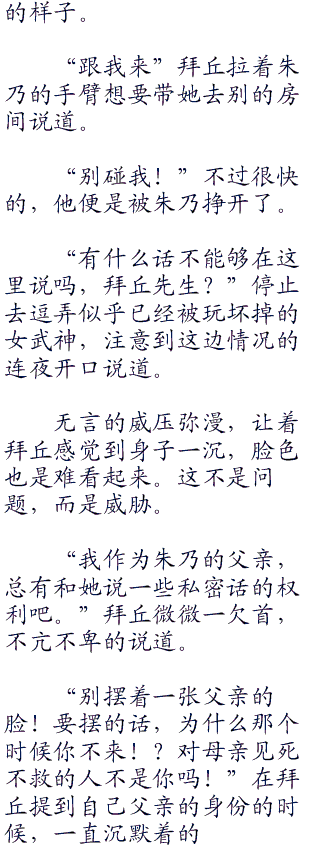 的样子。
“跟我来”拜丘拉着朱
乃的手臂想要带她去别的房
间说道。
“别碰我！”不过很快
的，他便是被朱乃挣开了。
“有什么话不能够在这
里说吗，拜丘先生？”停止
去逗弄似乎已经被玩坏掉的
女武神，注意到这边情况的
连夜开口说道。
无言的威压弥漫，让着
拜丘感觉到身子一沉，脸色
也是难看起来。这不是问
题，而是威胁。
“我作为朱乃的父亲，
总有和她说一些私密话的权
利吧。”拜丘微微一欠首，
不亢不卑的说道。
“别摆着一张父亲的
脸！要摆的话，为什么那个
时候你不来！？对母亲见死
不救的人不是你吗！”在拜
丘提到自己父亲的身份的时
候，一直沉默着的